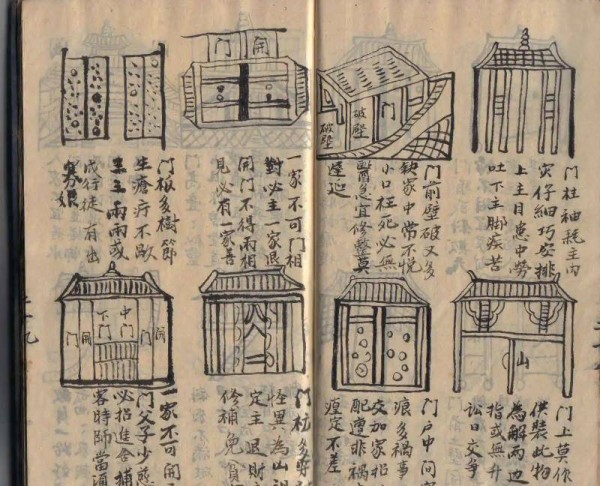 门柱袖耗主内
灾仔細巧安排
上主目患中勞
吐下主脚疾苦
破壁
破壁
门
门前壁破又多
缺家中常不悦
小口枉死必無
醫急宜修整莫
遲延
開
门
一家不可门相
對必主一家退
開门不得兩相
見必有一家害
门板多樹節
生瘡疔不歇
三三兩兩或
成行徒有出
寡娘
山
门上莫作
供裝此物
為解兩邊
指或無升
訟日交争
门户中间窟
痕多禍事
交加家招
配遭非禍
瘟定不差
门
怪異為山
定主退財
修補免貧
開
门
中门
下门
開
门
一家不可開
门父子少慈
必招進舍
客時師當須